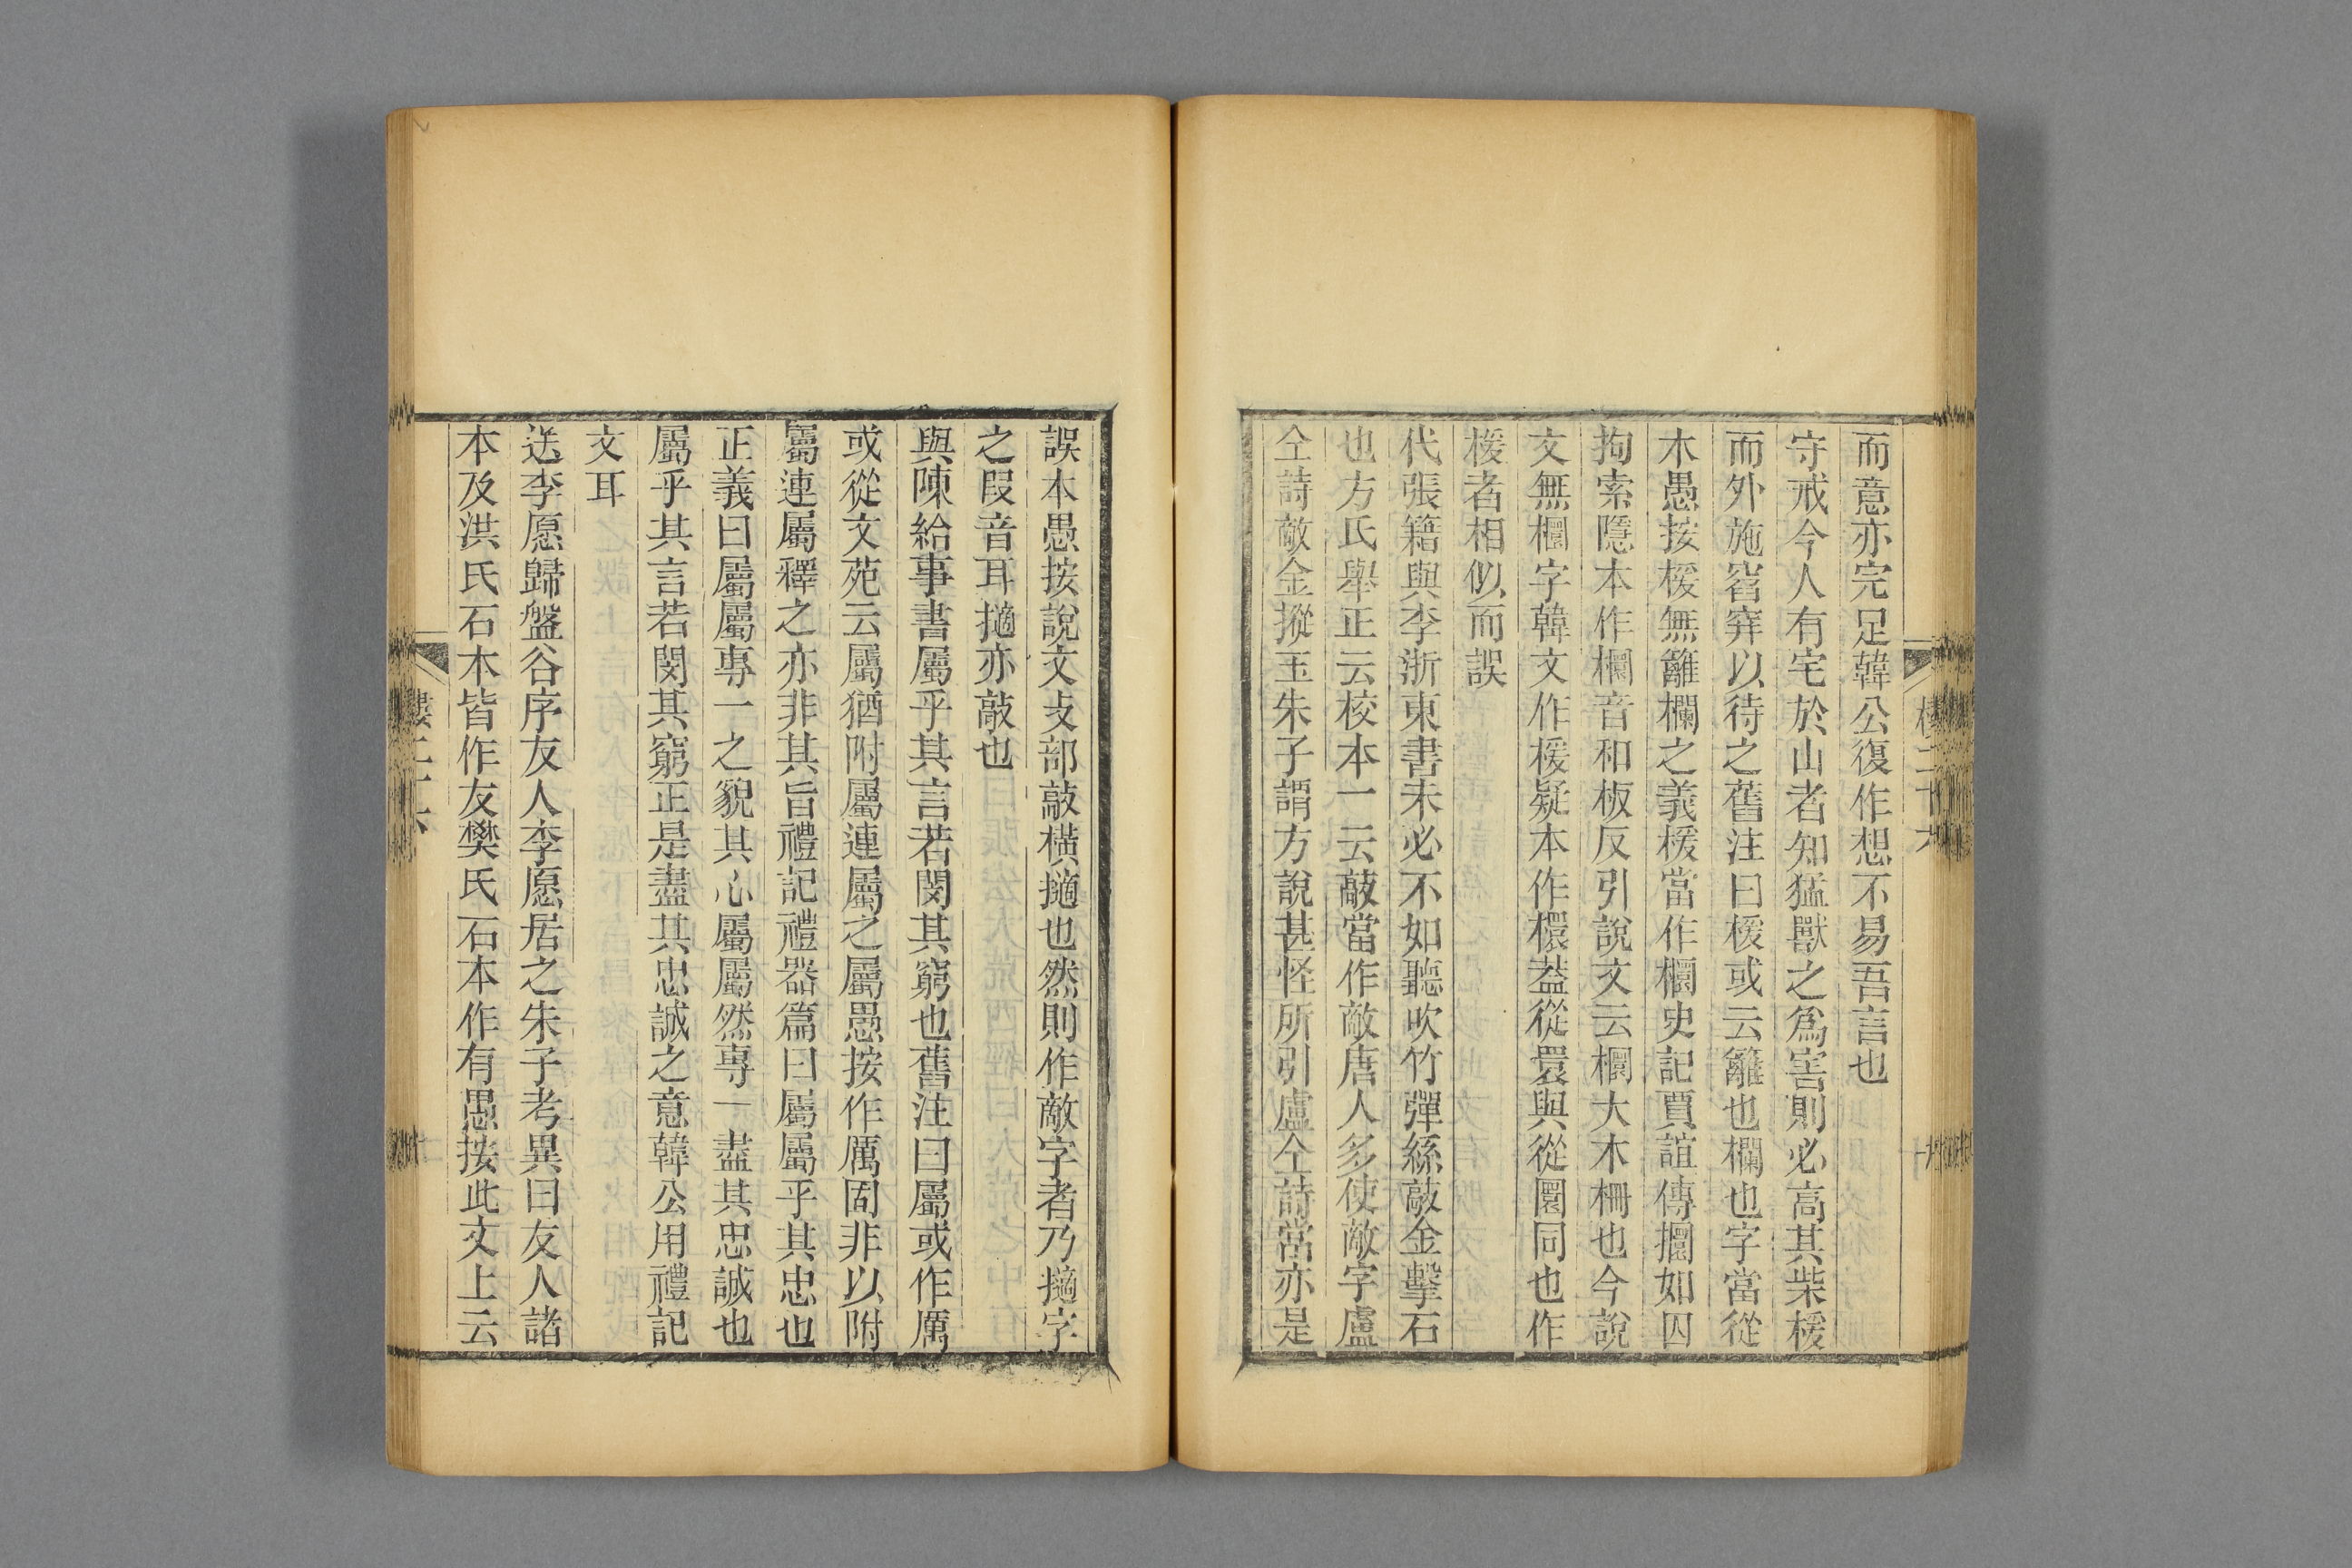 而意亦完足韓公復作想不易吾言也
守戒今人有宅於山者知猛獸之爲害則必高其柴楥
而外施窞穽以待之舊注曰楥或云籬也欄也字當從
木愚按楥無籬欄之義楥當作欄史記賈誼傳攌如囚
拘索隱本作欄音和板反引說文云欄大木柵也今說
文無欄字韓文作楥疑本作檈葢從睘與從圜同也作
楥者相似而誤
代張籍與李浙東書未必不如聽吹竹彈絲敲金擊石
也方氏舉正云校本一云敲當作敵唐人多使敵字盧
仝詩敵金摐玉朱子謂方說甚怪所引盧仝詩當亦是
誤本愚按說文攴部敲橫擿也然則作敵字者乃擿字
之叚音耳擿亦敲也
與陳給事書屬乎其言若閔其窮也舊注曰屬或作厲
或從文苑云屬猶附屬連屬之屬愚按作厲固非以附
屬連屬釋之亦非其旨禮記禮器篇曰屬屬乎其忠也
正義曰屬屬專一之貌其心屬屬然專一盡其忠誠也
屬乎其言若閔其窮正是盡其忠誠之意韓公用禮記
文耳
送李愿歸盤谷序友人李愿居之朱子考異曰友人諸
本及洪氏石本皆作友樊氏石本作有愚按此文上云
樓二十六